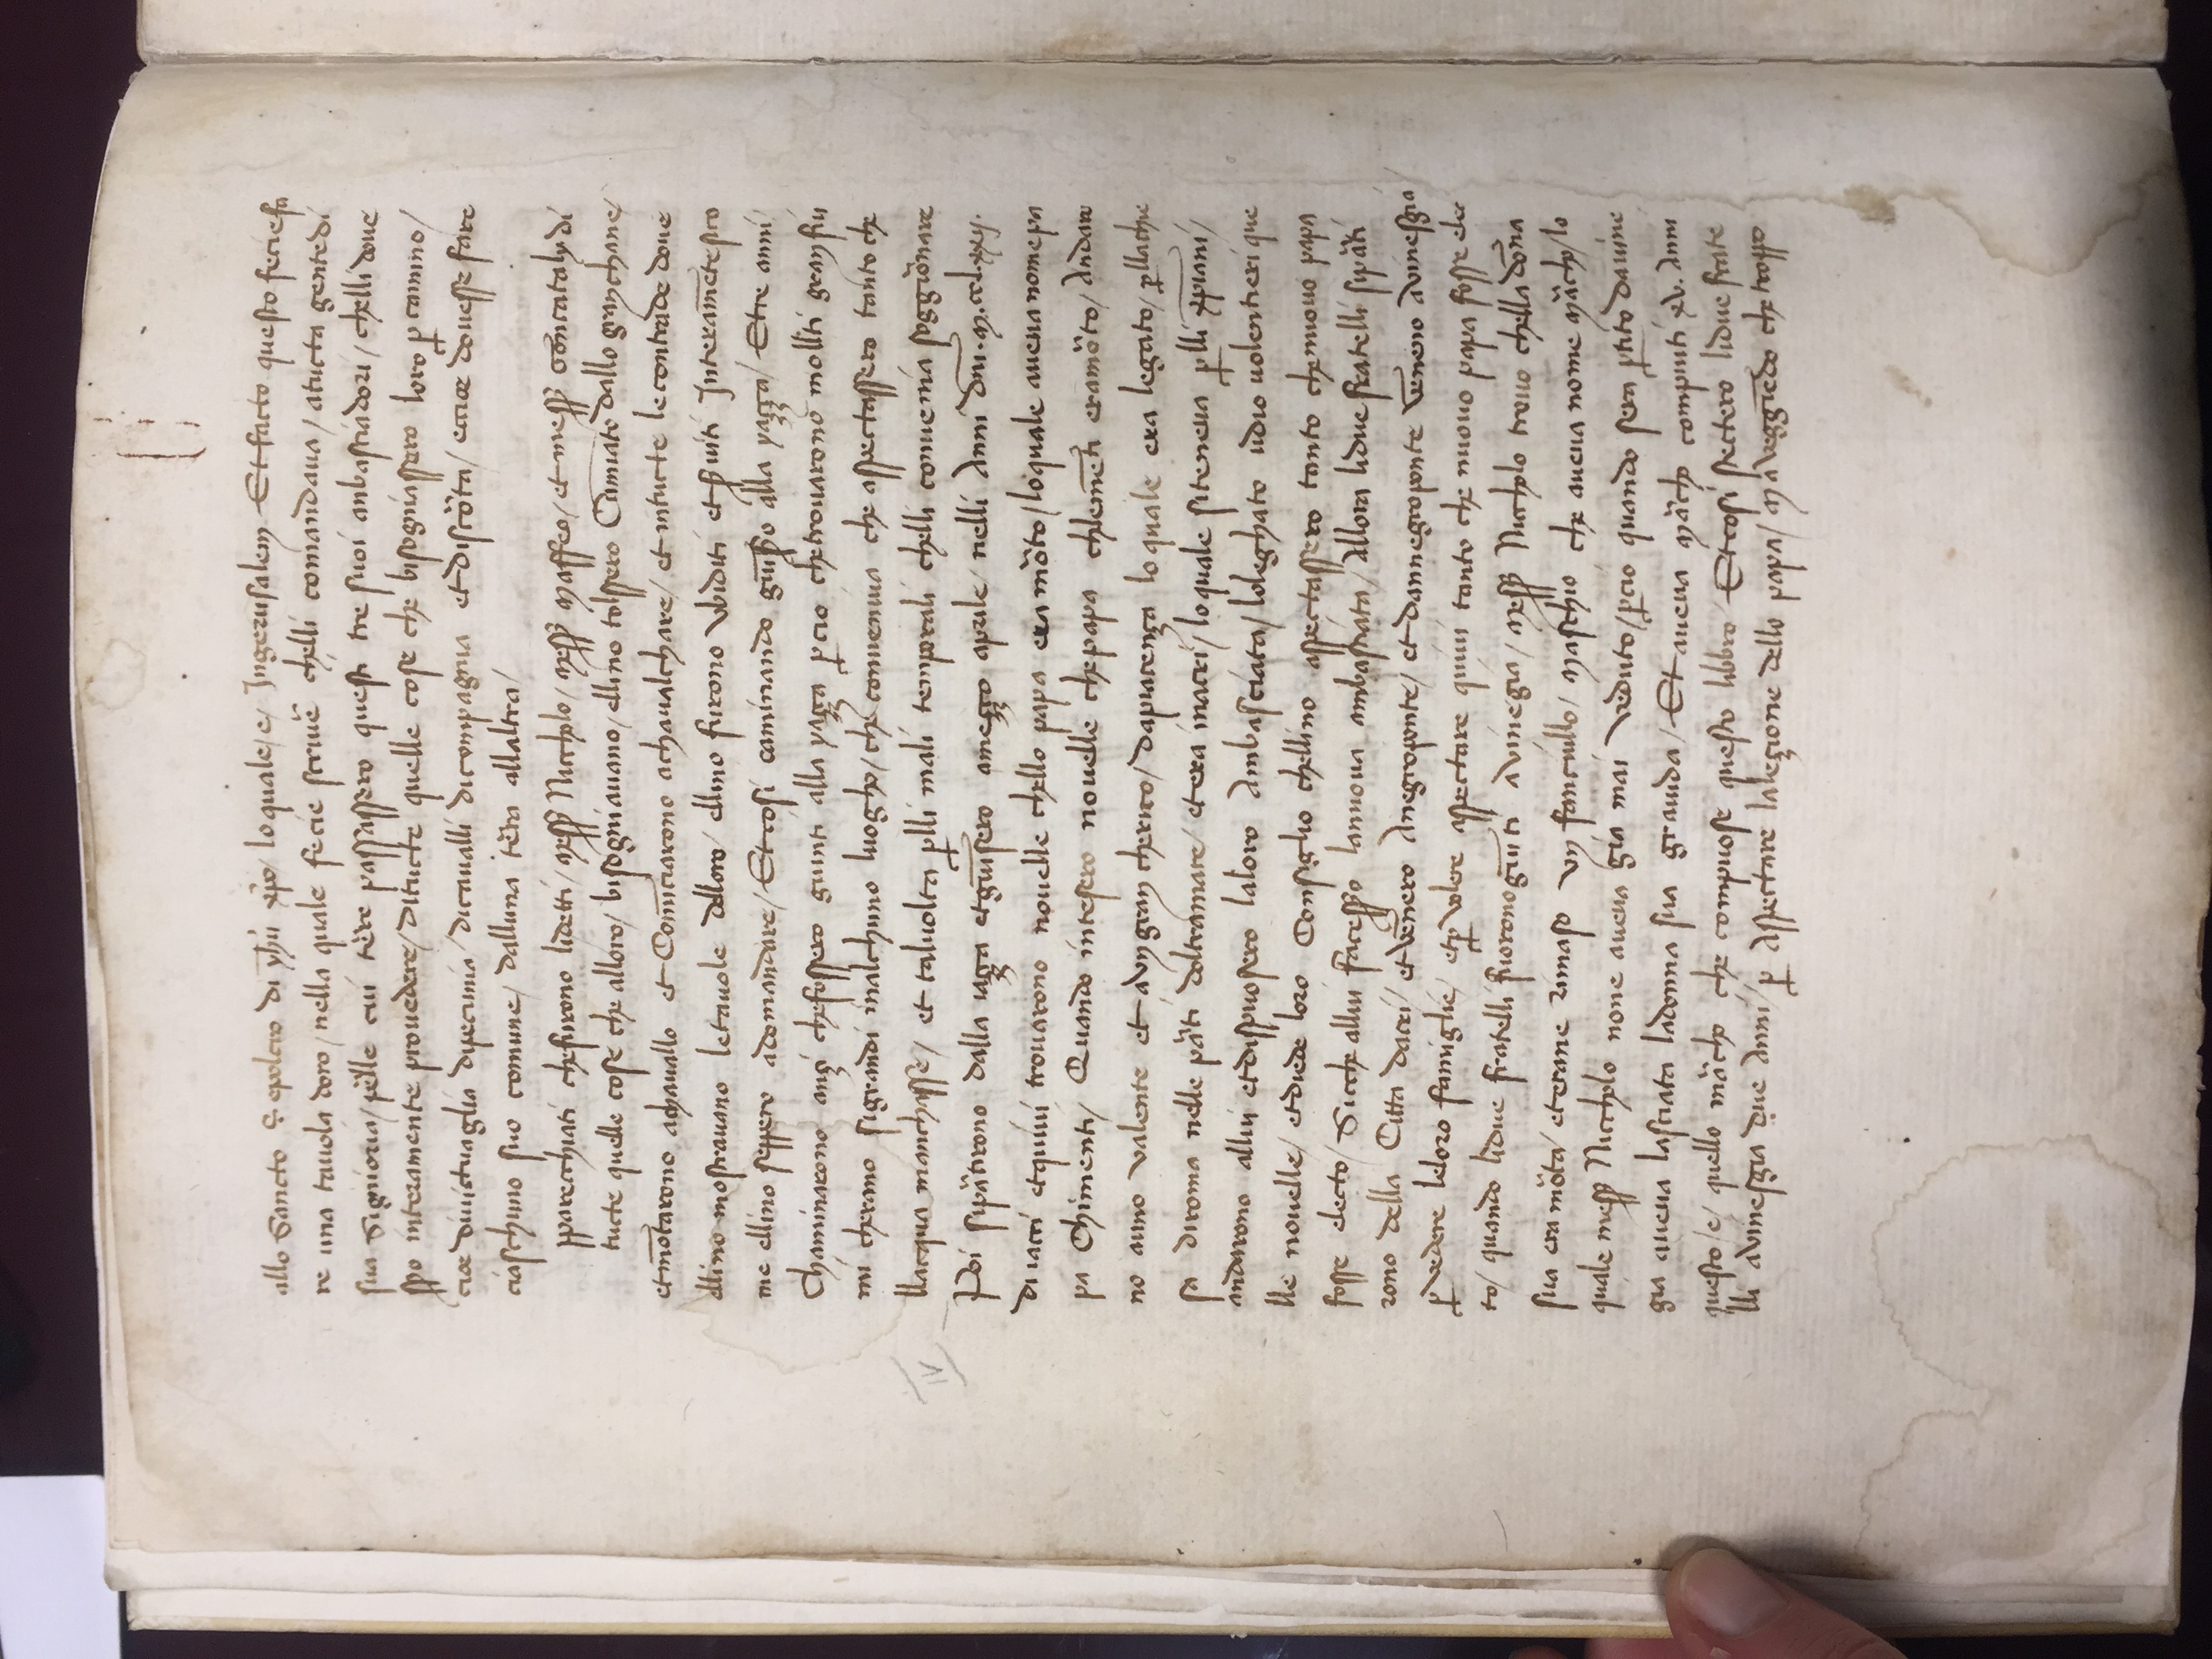 allo Sancto Sepolcro di yh̄u xp̄o / lo quale / e / Jngerusalem Et facto questo fecie fa
re una tavola doro / nella quale fecie scriuẽ chelli comandaua / atucta gente di
sua Signioria / p̃lle cui tẽre passassero questi tre suoi anbasciadori / chelli doue
ss̃o interamente prouedere / ditucte quelle cose che bisogniassero loro ꝑ camino /
cioe diuictuaglia dipecunia / dicaualli dicompagnia et discõta / eccioe douesse fare
ciaschuno suo comune / dalluna tẽra allaltra /
pparecchiati chefurono lidetti / Mess̃ Niccholo / Mess̃ Maffeo / et mess̃ Goncataly di
tucte quelle cose che alloro / bisogniauano / ellino tolssero Cōmiato dallo gran chane /
et mōtarono achauallo et Comīciarono achaualchare / et intucte le contrade doue
ellino mostrauano le tauole delloro / ellino furono vbiditi et s̃uiti Jnteramēte sico
me ellino seppero adomandare / Et cosi caminando giūs̃o alla yazza / Etre anni /
Chaminarono anzi chefossero giunti alla yazza ꝑcio chetrouarono mollti gran fiu
mi cherano sigrandi inalchuno luogho / che conueniua che aspectassero tanto che
llacqua manchasse / et taluolta ꝑlli mali temporali chelli conuenia soggiõnare
Poi sipãtirono dalla iazza et giūsero amezzo aprile / nelli Anni dnī . M . cclxxij .
di iacri et quiui trouarono nouelle chello papa era mõto / lo quale aueua nome pa
pa Chimenti / Quando intesero nouelle chepapa chlemēti eramõto / Andaro
no auno valente et avn gran cherico / dapiacenza lo quale era legato / ꝑllachie
sa diroma nelle pãti doltramare / et era inacri / lo quale siteneua ꝑlli xp̄iani /
andarono allui et dispuosero laloro Ambasciata / loleghato udio uolentieri que
lle nouelle / et diede loro Consiglio chellino aspectassero tanto chennuouo papa
fosse electo / Sicche allui facess̃o lannuoua ambasciata / Allora lidue fratelli sipãti
rono della Citta dacri / et vēnero Anegroponte / et dannegroponte vēneno avinesgia /
ꝑ vedere leloro famiglie / et ꝑ volere aspectare quiui tanto che nuouo papa fosse elec
to / quando lidue fratelli fuorono giūti avinegia / Mess̃ Niccholo trouo chella dōna
sua era mõta / et erane rimaso vn fanciullo / Maschio che aueua nome Mãcho / lo
quale mess̃ Niccholo none aueua gia mai veduto / ꝑcio quando sera ꝑtito dauine
gia aueua lasciata ladonna sua grauida / Et aueua Mãcho compiuti xv. Anni
questo / e / quello mãcho che compuose questo libbro Et cosi stectero lidue frate
lli avinesgia due Anni / ꝑ Aspectare lalezione dello papa / Ma veggiēdo che troppo
IV